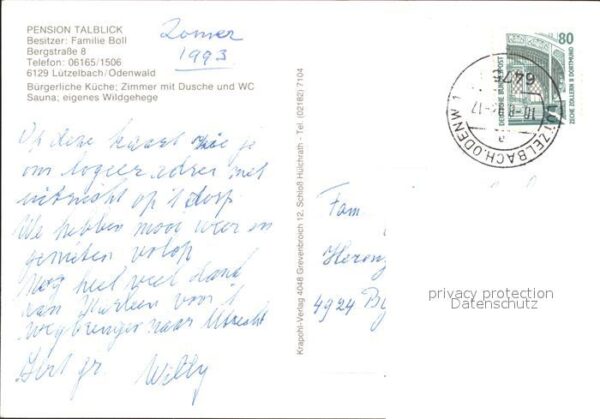 PENSION TALBLICK
Besitzer: Familie Boll
Bergstraße 8
Telefon: 06165/1506
6129 Lützelbach/Odenwald
Bürgerliche Küche; Zimmer mit Dusche und WC
Sauna; eigenes Wildgehege
Zomer
1993
Op deze kaart zie je
ons logeer adres met
uitzicht op 't dorp.
We hebben mooi weer en
genieten volop
Nog heel veel dank
van Marleen voor 't
wegbrengen naar Utrecht
Hart gr Willy
Krapohl-Verlag 4048 Grevenbroich 12, Schloß Hülchrath - Tel. (02182) 7104
80
DEUTSCHE BUNDESPOST
ZECHE ZOLLERN II DORTMUND
LÜTZELBACH, ODENW 1
6475
a
Fam
4924
privacy protection
Datenschutz